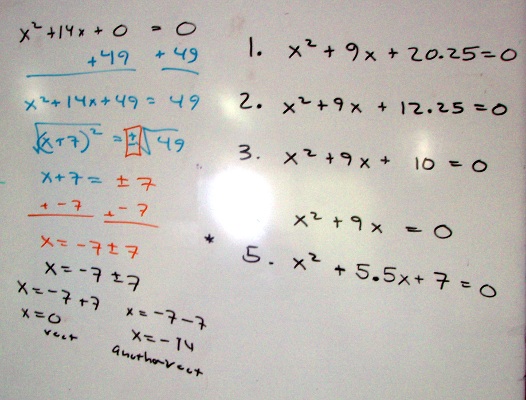 x² + 14x + 0 = 0
+49 +49
x² + 14x + 49 = 49
√(x+7)² = ±√49
x + 7 = ± 7
+ -7 + -7
x = -7 ± 7
x = -7 ± 7
x = -7 + 7
x = 0
root
x = -7 - 7
x = -14
another root
1. x² + 9x + 20.25 = 0
2. x² + 9x + 12.25 = 0
3. x² + 9x + 10 = 0
x² + 9x = 0
* 5. x² + 5.5x + 7 = 0